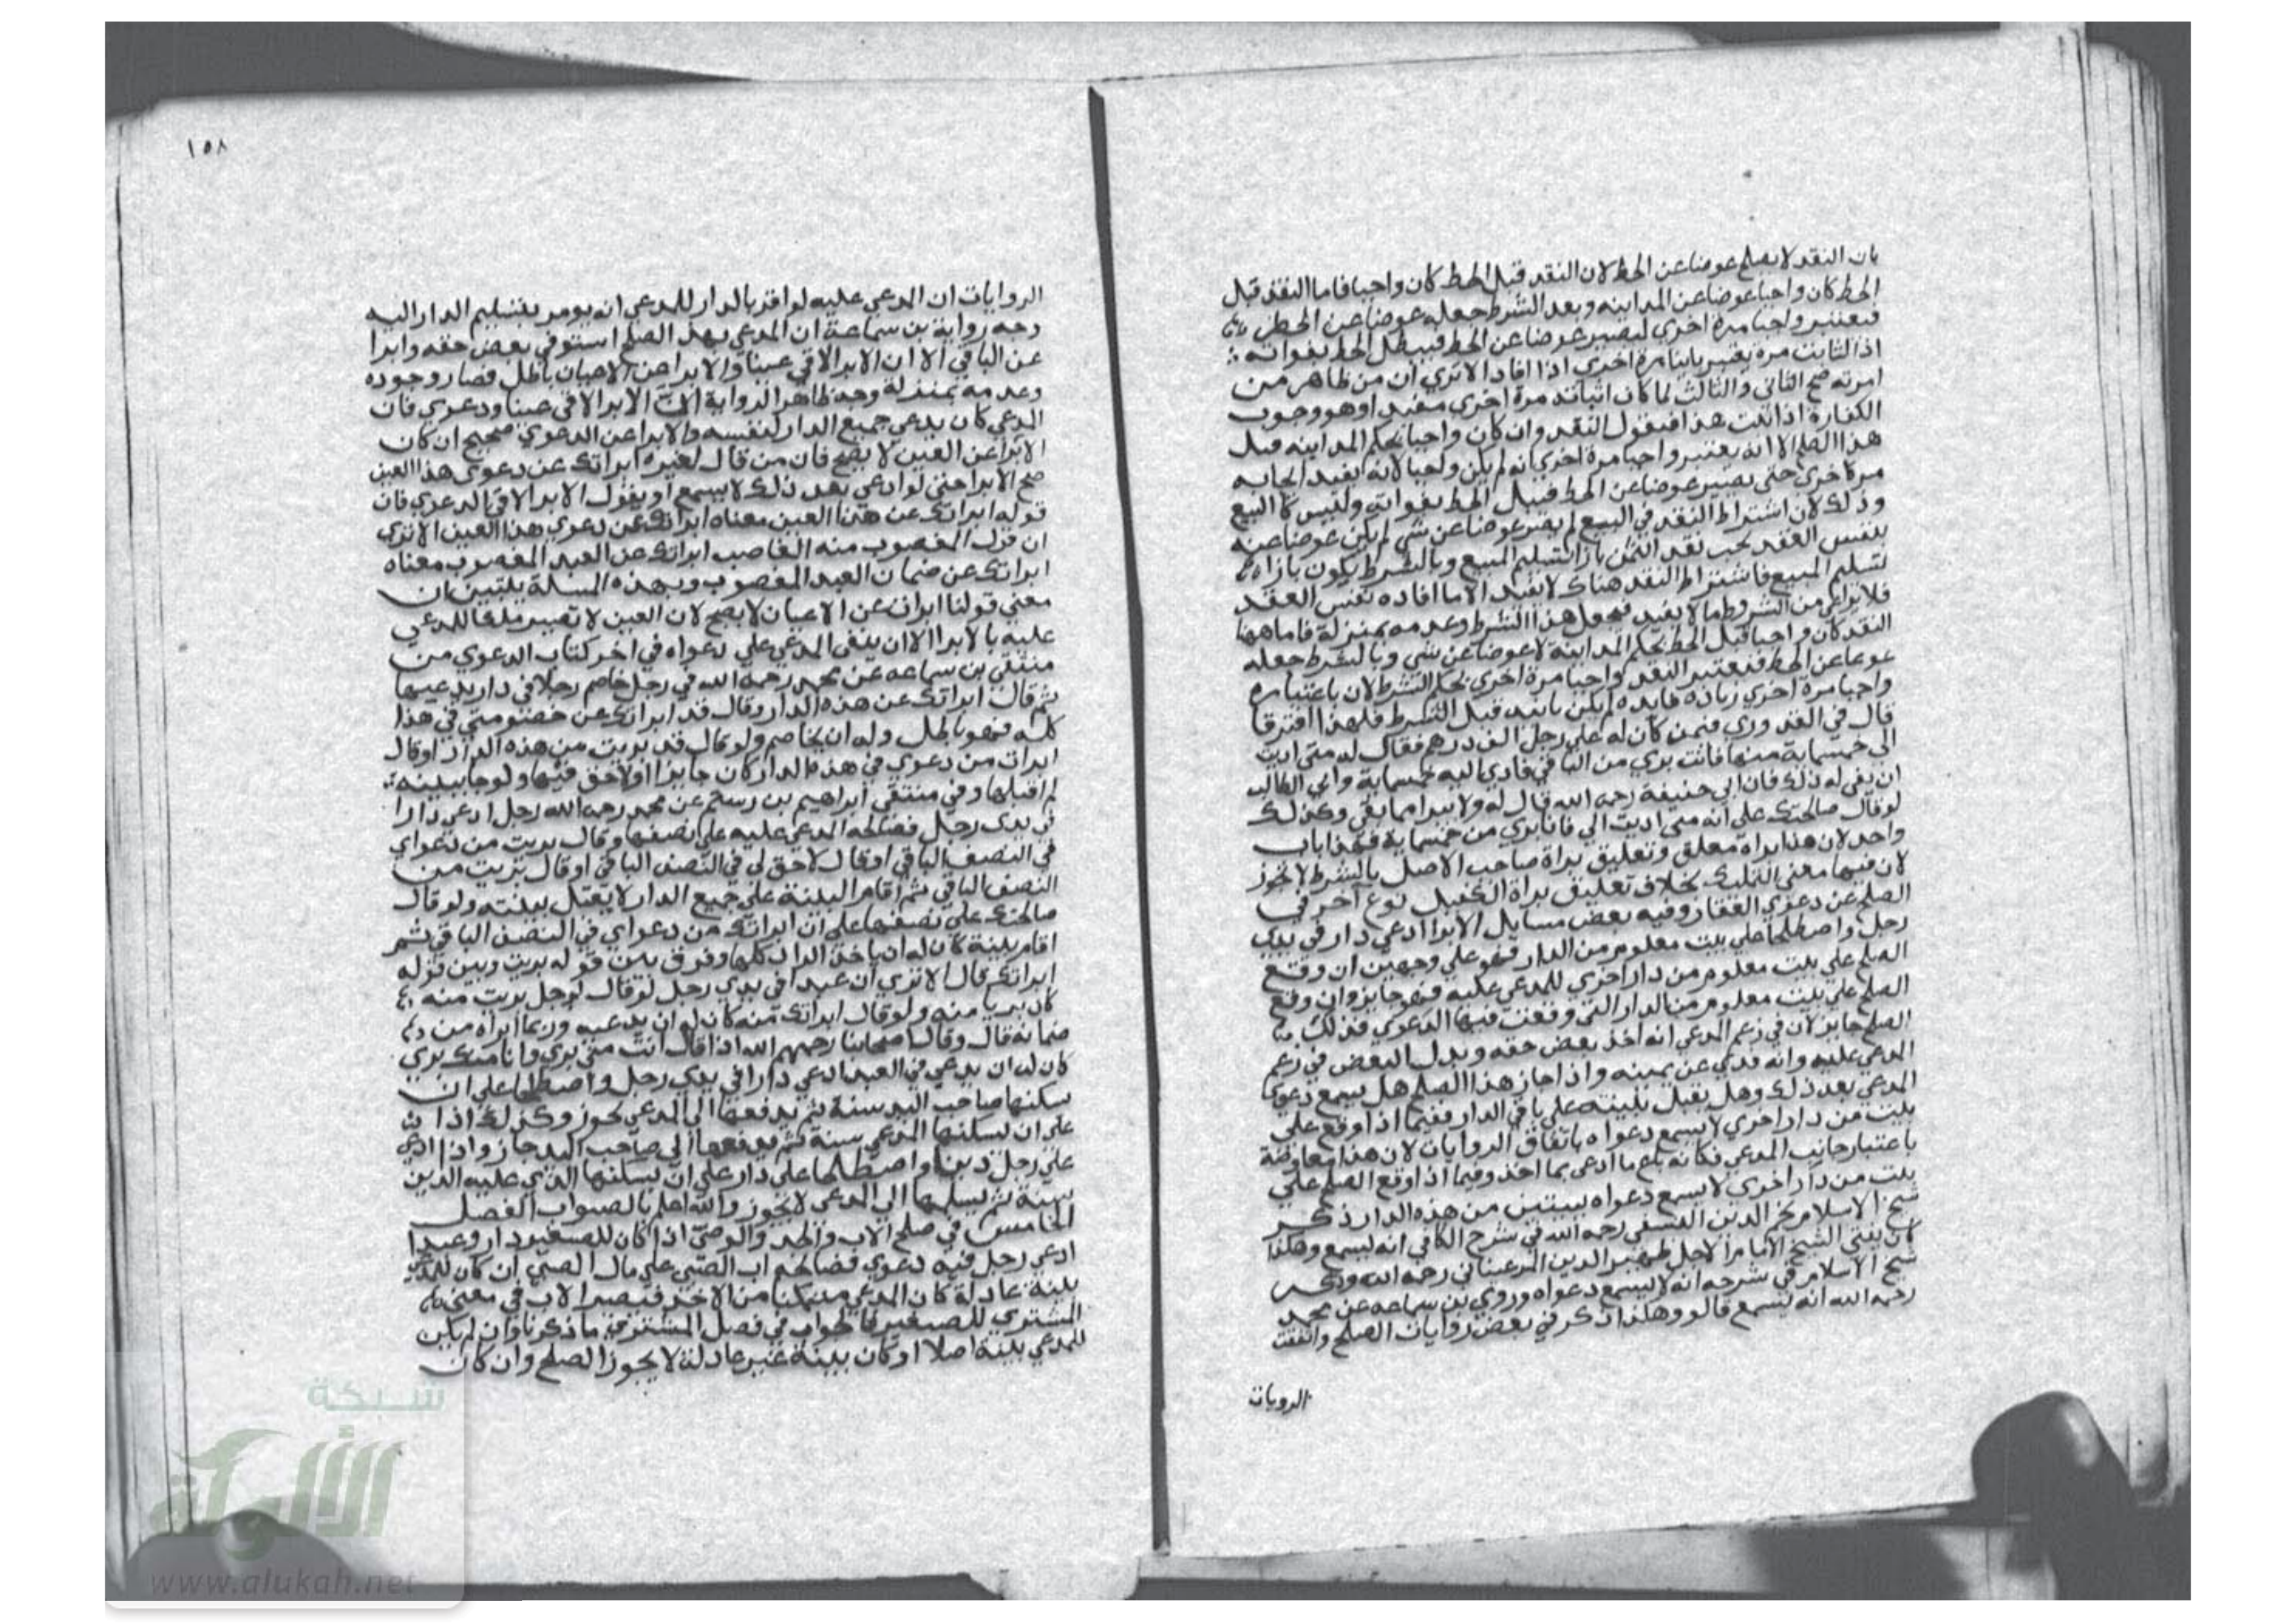 بان النقد لا يصلح عوضا عن الحط لان النقد قبل الحط كان واجبا فاما النقد قبل
الحط كان واجبا عوضا عن المداينه وبعد الشرط جعله عوضا عن الحط
فيعتبر واجبا مرة اخرى ليصير عوضا عن الحط فيبطل الحط بفواته
اذ الثابت مرة يعتبر ثابتا مرة اخرى اذا افاد الا ترى ان من ظاهر من
امرته صح الثاني والثالث لما كان اثباته مرة اخرى مفيدا وهو وجوب
الكفارة اذا ثبت هذا فنقول النقد وان كان واجبا بحكم المداينه قبل
هذا الصلح الا انه يعتبر واجبا مرة اخرى انه لم يكن واجبا لانه يفيد
مرة اخرى حتى يصير عوضا عن الحط فيبطل الحط بفواته وليس كالبيع
وذلك لان اشتراط النقد في البيع لم يصر عوضا عن شي لم يكن عوضا عنه
بنفس العقد يجب نقد الثمن بازا تسليم المبيع وبالشرط يكون بازاء
تسليم المبيع فاشتراط النقد هناك لا يفيد الا ما افاده نفس العقد
فلا يراعى من الشروط ما لا يفيد فيجعل هذا الشرط وعدمه بمنزلة فاما ههنا
النقد كان واجبا قبل الحط بحكم المداينة لا عوضا عن شي وبالشرط جعله
عوضا عن الحط فيعتبر النقد واجبا مرة اخرى بحكم الشرط لان باعتباره
واجبا مرة اخرى زيادة فايده لم يكن ثابته قبل الشرط فلهذا افترقا
قال في القدوري فيمن كان له على رجل الف درهم فقال له متى اديت
الى خمسماية منها فانت بري من الباقي فادى اليه خمسماية وابي الطالب
ان يفي له ذلك فان ابي حنيفة رحمه الله قال له ولا يبرا مما بقى وكذلك
لو قال صالحتك على انه متى اديت الي فانا بري من خمسماية فهذا باب
واحد لان هذا براة معلق وتعليق براة صاحب الاصل بالشرط لا يجوز
لان فيها معنى التمليك بخلاف تعليق براة الكفيل نوع آخر في
الصلح عن دعوى العقار وفيه بعض مسايل الابرا ادعى دار في يدي
رجل واصطلحا على بيت معلوم من الدار فهو على وجهين ان وقع
الصلح على بيت معلوم من دار اخرى للمدعى عليه فهو جايز وان وقع
الصلح على بيت معلوم من الدار التي وقعت فيها الدعوى فذلك
الصلح جايز لان في زعم المدعي انه اخذ بعض حقه وبدل البعض في زعم
المدعى عليه وانه فدى عن يمينه واذا جاز هذا الصلح هل يسمع دعوى
المدعي بعد ذلك وهل يقبل بينيته على باقي الدار ففيما اذا وقع على
بيت من دار اخرى لا يسمع دعواه باتفاق الروايات لان هذا معاوضة
باعتبار جانب المدعي فكانه باع ما ادعى بما اخذ وفيما اذا وقع الصلح على
بيت من دار اخرى لا يسمع دعواه ببيتين من هذه الدار ذكر
شيخ الاسلام نجم الدين النسفى رحمه الله في شرح الكافي انه يسمع وهكذا
كان يفتي الشيخ الامام الاجل ظهير الدين المرغيناني رحمه الله وذكر
شيخ الاسلام في شرحه انه لا يسمع دعواه وروى بن سماعه عن محمد
رحمه الله انه يسمع قالو وهكذا ذكر في بعض روايات الصلح واتفقت
الرويات
١٥٨
الروايات ان المدعي عليه لو اقر بالدار للمدعي انه يومر بتسليم الدار اليه
وجه رواية بن سماعة ان المدعي بهذا الصلح استوفى بعض حقه وابرا
عن الباقي الا ان الابرا لاقى عينا والابرا عن الاعيان باطل فصار وجوده
وعدمه بمنزلة وجه ظاهر الرواية ان الابرا لاقى عينا ودعوى فان
المدعي كان يدعي جميع الدار لنفسه والابرا عن الدعوى صحيح ان كان
الابرا عن العين لا يصح فان من قال لغيره ابراتك عن دعوى هذا العين
صح الابرا حتى لو ادعى بعد ذلك لا يسمع او يقول الابرا لاقى الدعوى فان
قوله ابراتك عن هذا العين معناه ابراتك عن دعوى هذا العين الا ترى
ان قول المغصوب منه الغاصب ابراتك عن العبد المغصوب معناه
ابراتك عن ضمان العبد المغصوب وبهذه المسلة يتبين ان
معنى قولنا ابراك عن الاعيان لا يصح لان العين لا تصير ملكا للمدعي
عليه بالابرا الا ان يبقى المدعي على دعواه في اخر كتاب الدعوى من
منتقى بن سماعه عن محمد رحمه الله في رجل خاصم رجلا في دار يدعيها
ثم قال ابراتك عن هذه الدار وقال قد ابراتك عن خصومتي في هذا
كله فهو باطل وله ان يخاصم ولو قال قد بريت من هذه الدار او قال
ابرات من دعوى في هذه الدار كان جايزا ولا حق فيها ولو جا ببينة
لم اقبلها وفي منتقى ابراهيم بن رستم عن محمد رحمه الله رجل ادعى دارا
في يدى رجل فصالحه المدعى عليه على نصفها وقال بريت من دعواي
في النصف الباقي او قال لا حق لي في النصف الباقي او قال بريت من
النصف الباقي ثم اقام البينة على جميع الدار لا يقبل بينته ولو قال
صالحتك على نصفها على ان ابراتك من دعواي في النصف الباقي ثم
اقام بينة كان له ان ياخذ الدار كلها وفرق بين قوله بريت وبين قوله
ابراتك قال الا ترى ان عبدا في يدي رجل لو قال لرجل بريت منه
كان بريا منه ولو قال ابراتك منه كان له ان يدعيه وربما ابراه من
ضمانه قال وقال اصحابنا رحمهم الله اذا قال انت مني بري وانا منك بري
كان له ان يدعي في العبد ادعى دارا في يدي رجل واصطلحا على ان
يسكنها صاحب اليد سنة ثم يدفعها الى المدعي يجوز وكذلك اذا
على ان يسكنها المدعي سنة ثم يدفعها الى صاحب اليد جاز واذا ادعى
على رجل دينا واصطلحا على دار على ان يسكنها الذي عليه الدين
سنة ثم يسلمها الى المدعي لا يجوز والله اعلم بالصواب الفصل
الخامس في صلح الاب والجد والوصي اذا كان للصغير دار وعبدا
ادعى رجل فيه دعوى فصالحه اب الصبي على مال الصبي ان كان للمدعي
بينة عادلة كان المدعي متمكنا من الاخذ فيصير الاب في معنى
المشتري للصغير فالجواب في فصل المشتري ما ذكرنا وان لم يكن
للمدعي بينة اصلا او كان بينة غير عادلة لا يجوز الصلح وان كان
شبكة
الألوكة
www.alukah.net